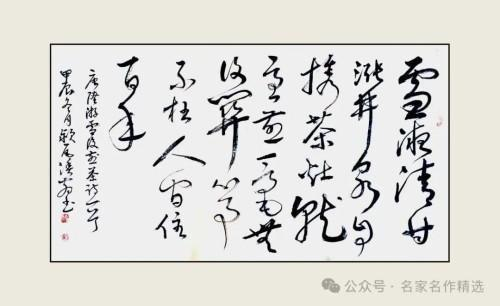 雪液清甘
涨井泉自
携茶灶就
烹煎一毫無
復關心事
不枉人间住
百年
陸游雪後煎茶诗一首
甲辰冬月 书
公众号 · 名家名作精选